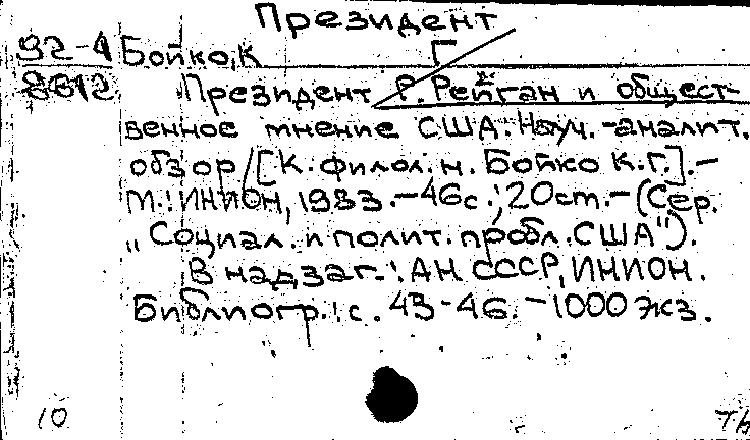 Президент
92-4 Бойко, К Г
8612 Президент Р. Рейган и общест-
венное мнение США. Науч.-аналит.
обзор / [К. филол. н. Бойко К.Г.]. –
М.: ИНИОН, 1983. – 46с.; 20см. – (Сер.
„Социал. и полит. пробл. США").
В надзаг.: АН СССР, ИНИОН.
Библиогр.: с. 43-46. – 1000 экз.
10